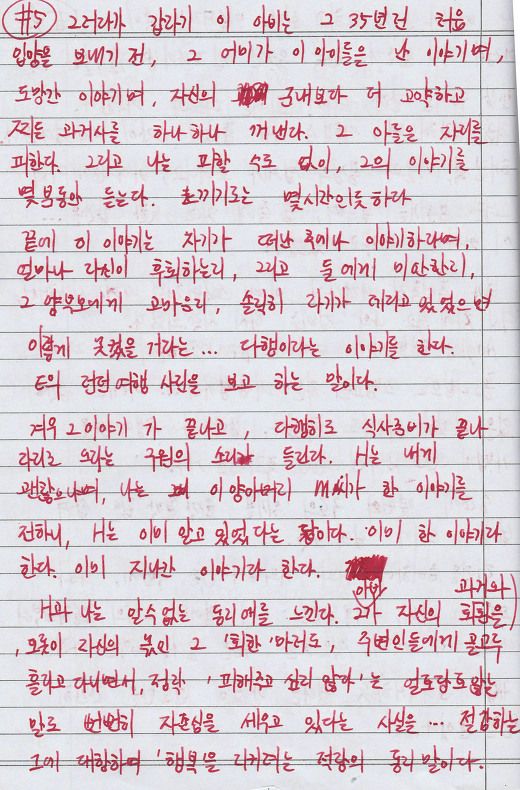 #5 그러다가 갑자기 이 아비는 그 35년전 처음
입양을 보내기 전, 그 어미가 이 아이들을 난 이야기며,
도망간 이야기며, 자신의 구내보다 더 고약하고
찌든 과거사를 하나하나 꺼낸다. 그 아들은 자리를
피한다. 그리고 나는 피할 수도 없이, 그의 이야기를
몇 분동안 듣는다. 느끼기로는 몇시간인듯 하다
끝에 이 이야기는 자기가 떠난 후에나 이야기하라며,
얼마나 자신이 후회하는지, 그리고 둘에게 미안한지,
그 양부모에게 고마운지, 솔직히 자기가 데리고 있었으면
이렇게 못컸을 거라는... 다행이라는 이야기를 한다.
E의 런던여행 사진을 보고 하는 말이다.
겨우 그 이야기가 끝나고, 다행히도 식사준비가 끝나
자리로 오라는 구원의 소리가 들린다. H는 내게
괜찮으냐며, 나는 이 양아버리 M씨가 한 이야기를
전하니, H는 이미 알고 있었다는 답이다. 이미 한 이야기라
한다. 이미 지나간 이야기라 한다.
H과 나는 알수없는 동지애를 느낀다. 아비가 자신의 과거와 회한을
, 오롯이 자신의 몫인 그 '회한' 마저도, 주변인들에게 골고루
흘리고 다니면서, 정작 '피해주고 싶지 않아'는 얼토당토 않는
말로 번번히 자존심을 세우고 있다는 사실을... 절감하는
그에 대항하여 '행복'을 지키려는 적량의 동지 말이다.